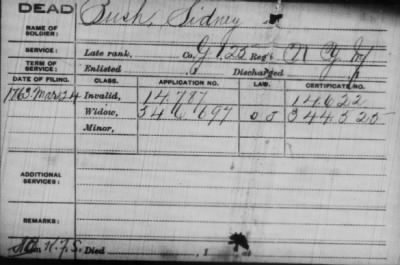 DEAD Bush, Sidney
NAME OF SOLDIER:
SERVICE: Late rank, Co. G 125 Reg't N Y Inf
TERM OF SERVICE: Enlisted , 1 Discharged , 1
DATE OF FILING. CLASS. APPLICATION NO. LAW. CERTIFICATE NO.
1863 Mar 24 Invalid, 14.787 14.622
Widow, 546697 344525
Minor,
ADDITIONAL SERVICES:
REMARKS:
Died , 1 at